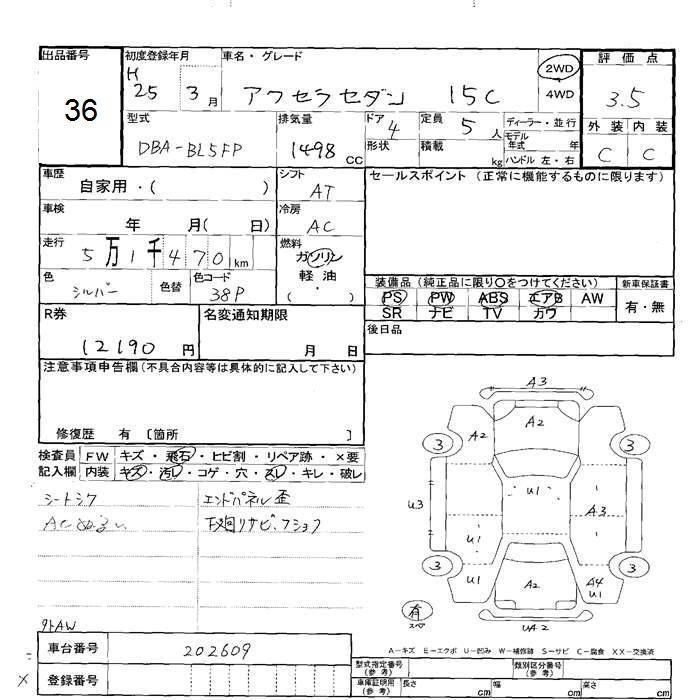 出品番号 初度登録年月 車名・グレード 評価点
36
H 25 3月 アクセラセダン 15C 2WD 4WD 3.5
型式 排気量 ドア 4 定員 5人 ディーラー・並行 外装 内装
DBA-BL5FP 1498 CC 形状 積載 kg モデル年式 年 ハンドル 左・右 C C
車歴 自家用・( ) シフト AT セールスポイント (正常に機能するものに限ります)
車検 年 月( 日) 冷房 AC
走行 5万1千470km 燃料 ガソリン 軽油 ・( )
色 シルバー 色替 色コード 38P
装備品 (純正品に限り○をつけてください) 新車保証書
PS PW ABS エアB AW 有・無
SR ナビ TV カワ
R券 12190円 名変通知期限 月 日 後日品
注意事項申告欄(不具合内容等は具体的に記入して下さい)
修復歴 有 〔箇所 〕
検査員 FW キズ・飛石・ヒビ割・リペア跡・×要
記入欄 内装 キズ・汚レ・コゲ・穴・スレ・キレ・破レ
シートシワ エンドパネル歪
ACぬるい 下廻りサビ・フショク
A3
A2 A2
3 3
U3 U1 A3
U1
3 3
U1 A2 A4 U1
有 スペア UA2
外AW
A-キズ E-エクボ U-凹み W-補修跡 S-サビ C-腐食 XX-交換済
車台番号 202609
型式指定番号(参考) 類別区分番号(参考)
× 登録番号
車庫証明用(参考) 長さ cm 幅 cm 高さ cm